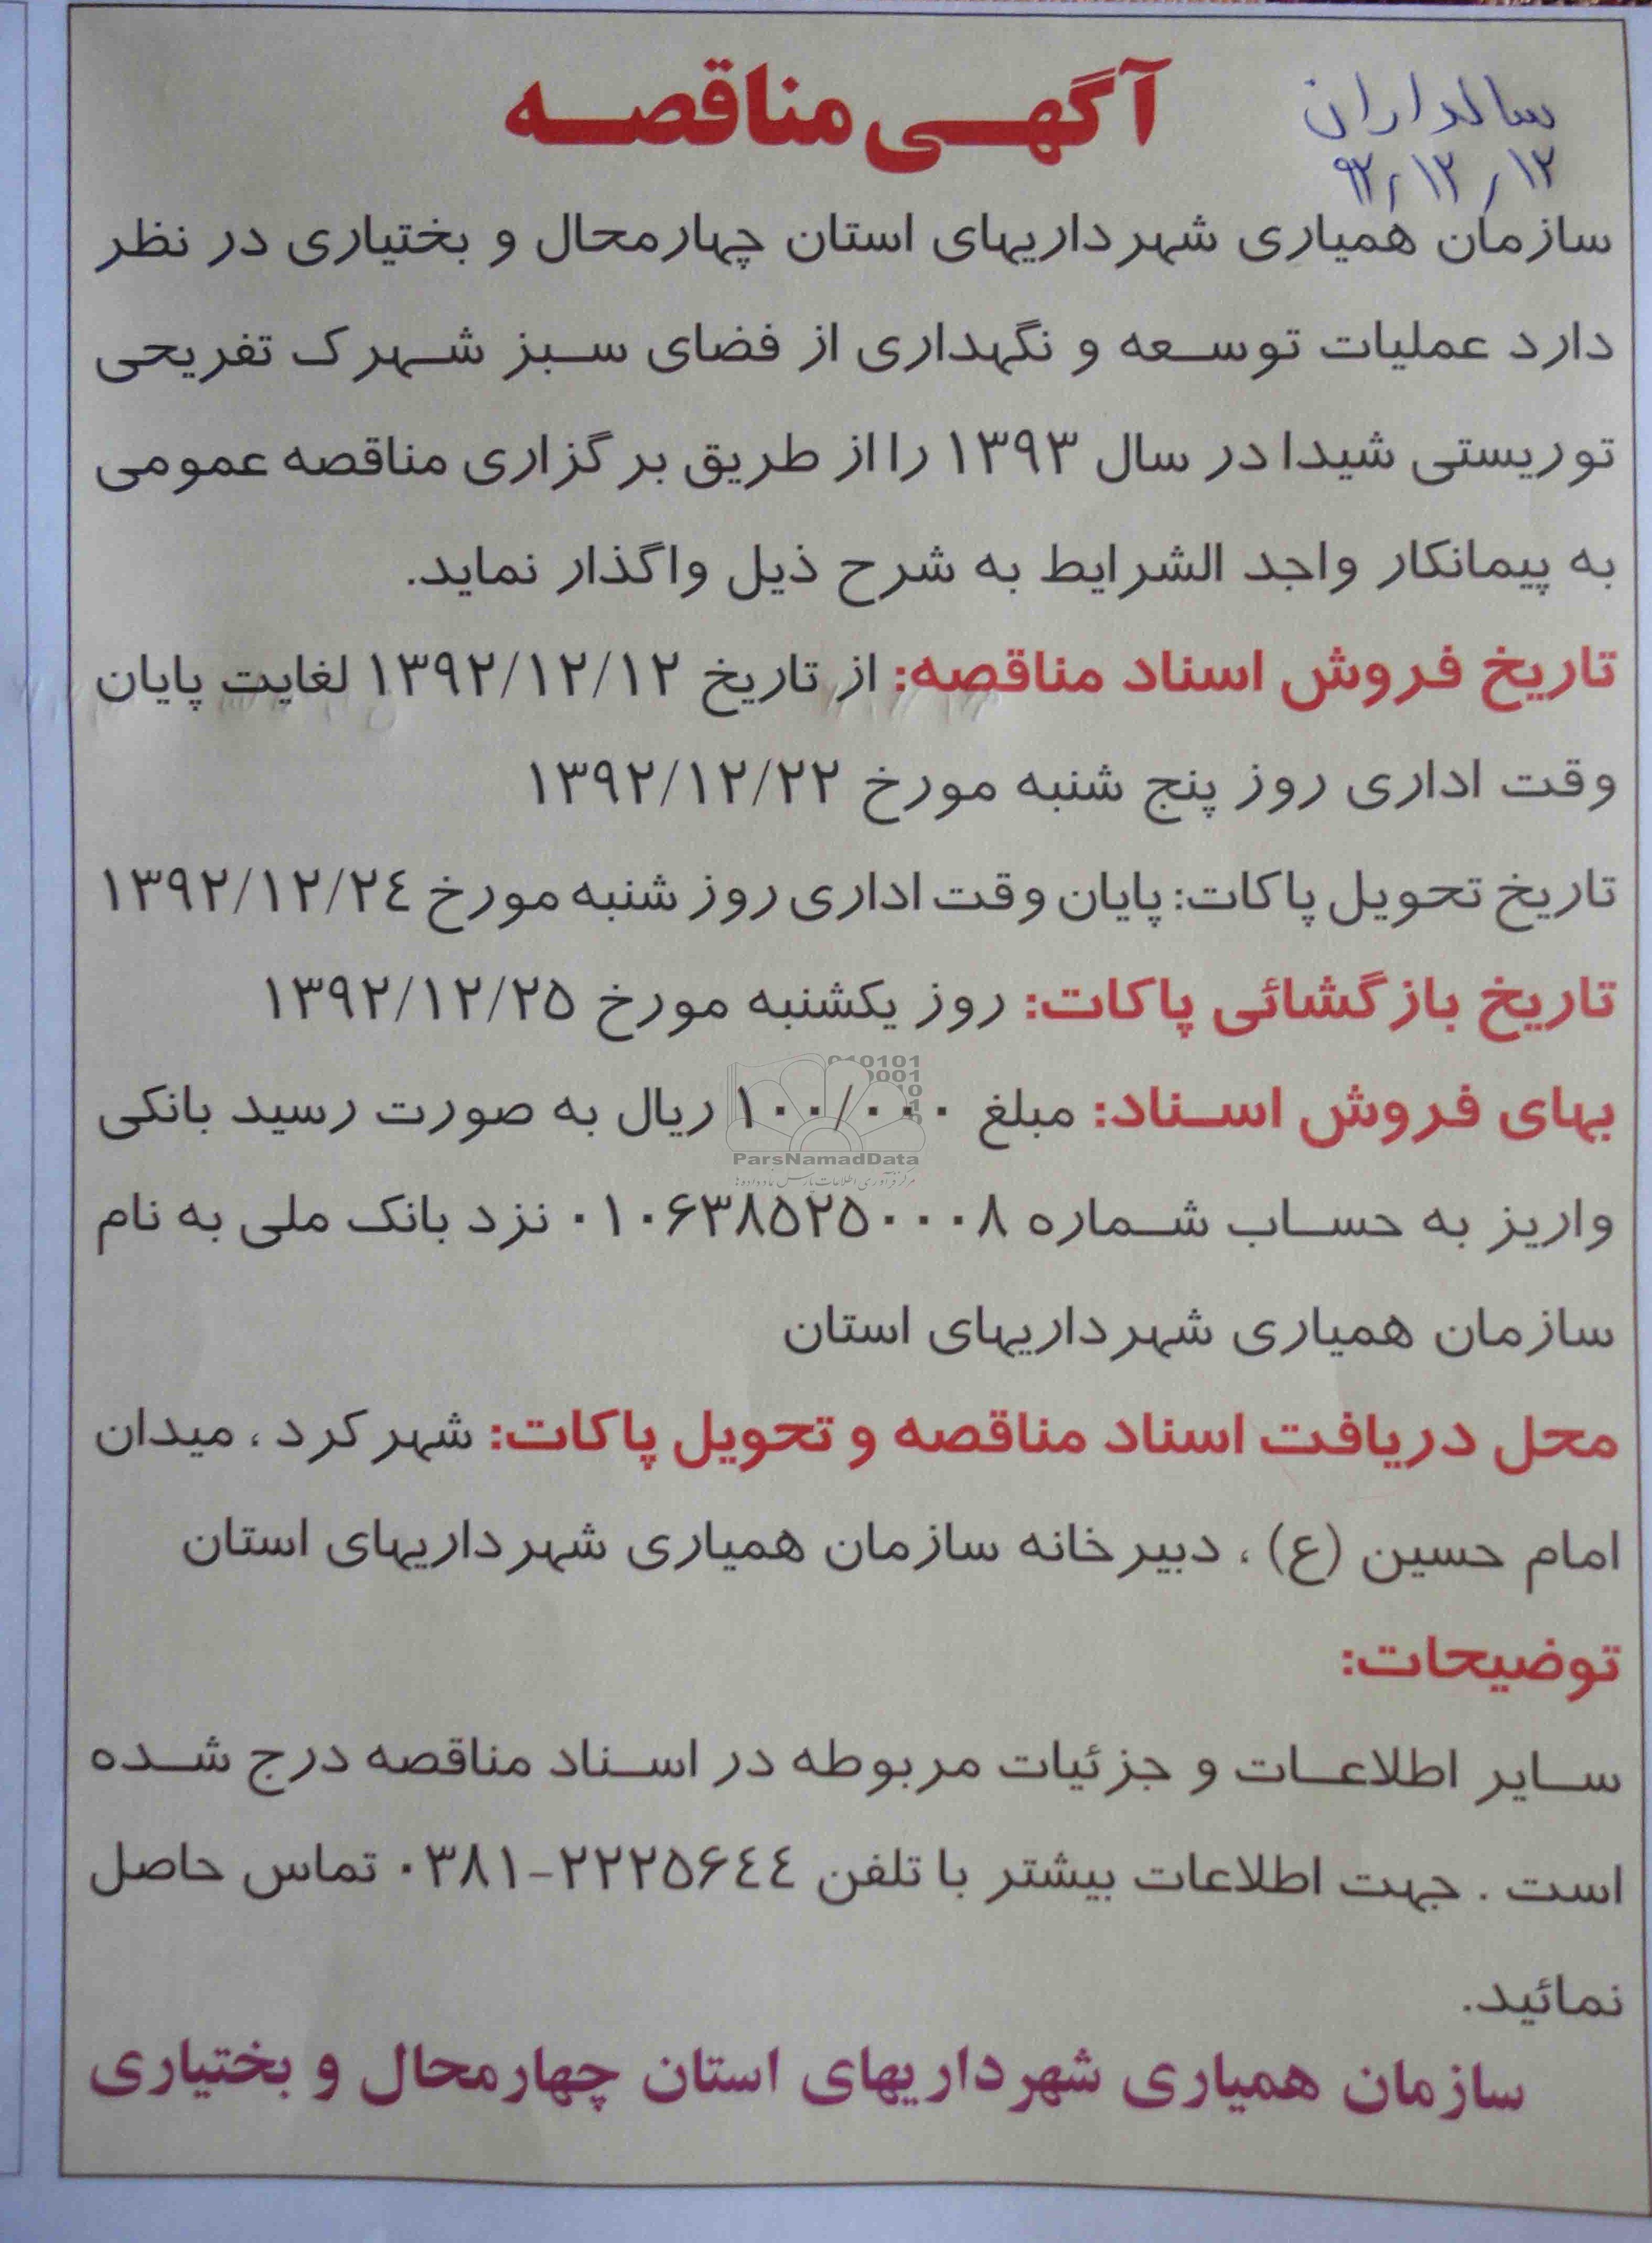 آگهی مناقصه
سالداران
۹۲/۱۲/۱۲
سازمان همیاری شهرداریهای استان چهارمحال و بختیاری در نظر
دارد عملیات توسعه و نگهداری از فضای سبز شهرک تفریحی
توریستی شیدا در سال ۱۳۹۳ را از طریق برگزاری مناقصه عمومی
به پیمانکار واجد الشرایط به شرح ذیل واگذار نماید.
تاریخ فروش اسناد مناقصه: از تاریخ ۱۳۹۲/۱۲/۱۲ لغایت پایان
وقت اداری روز پنج شنبه مورخ ۱۳۹۲/۱۲/۲۲
تاریخ تحویل پاکات: پایان وقت اداری روز شنبه مورخ ۱۳۹۲/۱۲/۲٤
تاریخ بازگشائی پاکات: روز یکشنبه مورخ ۱۳۹۲/۱۲/۲۵
بهای فروش اسناد: مبلغ ۱۰۰/۰۰۰ ریال به صورت رسید بانکی
ParsNamadData
مرکز فرآوری اطلاعات پارس نماد داده ها
واریز به حساب شماره ۰۱۰۶۳۸۵۲۵۰۰۰۸ نزد بانک ملی به نام
سازمان همیاری شهرداریهای استان
محل دریافت اسناد مناقصه و تحویل پاکات: شهرکرد ، میدان
امام حسین (ع) ، دبیرخانه سازمان همیاری شهرداریهای استان
توضیحات:
سایر اطلاعات و جزئیات مربوطه در اسناد مناقصه درج شده
است . جهت اطلاعات بیشتر با تلفن ۲۲۲۵۶٤٤-۰۳۸۱ تماس حاصل
نمائید.
سازمان همیاری شهرداریهای استان چهارمحال و بختیاری